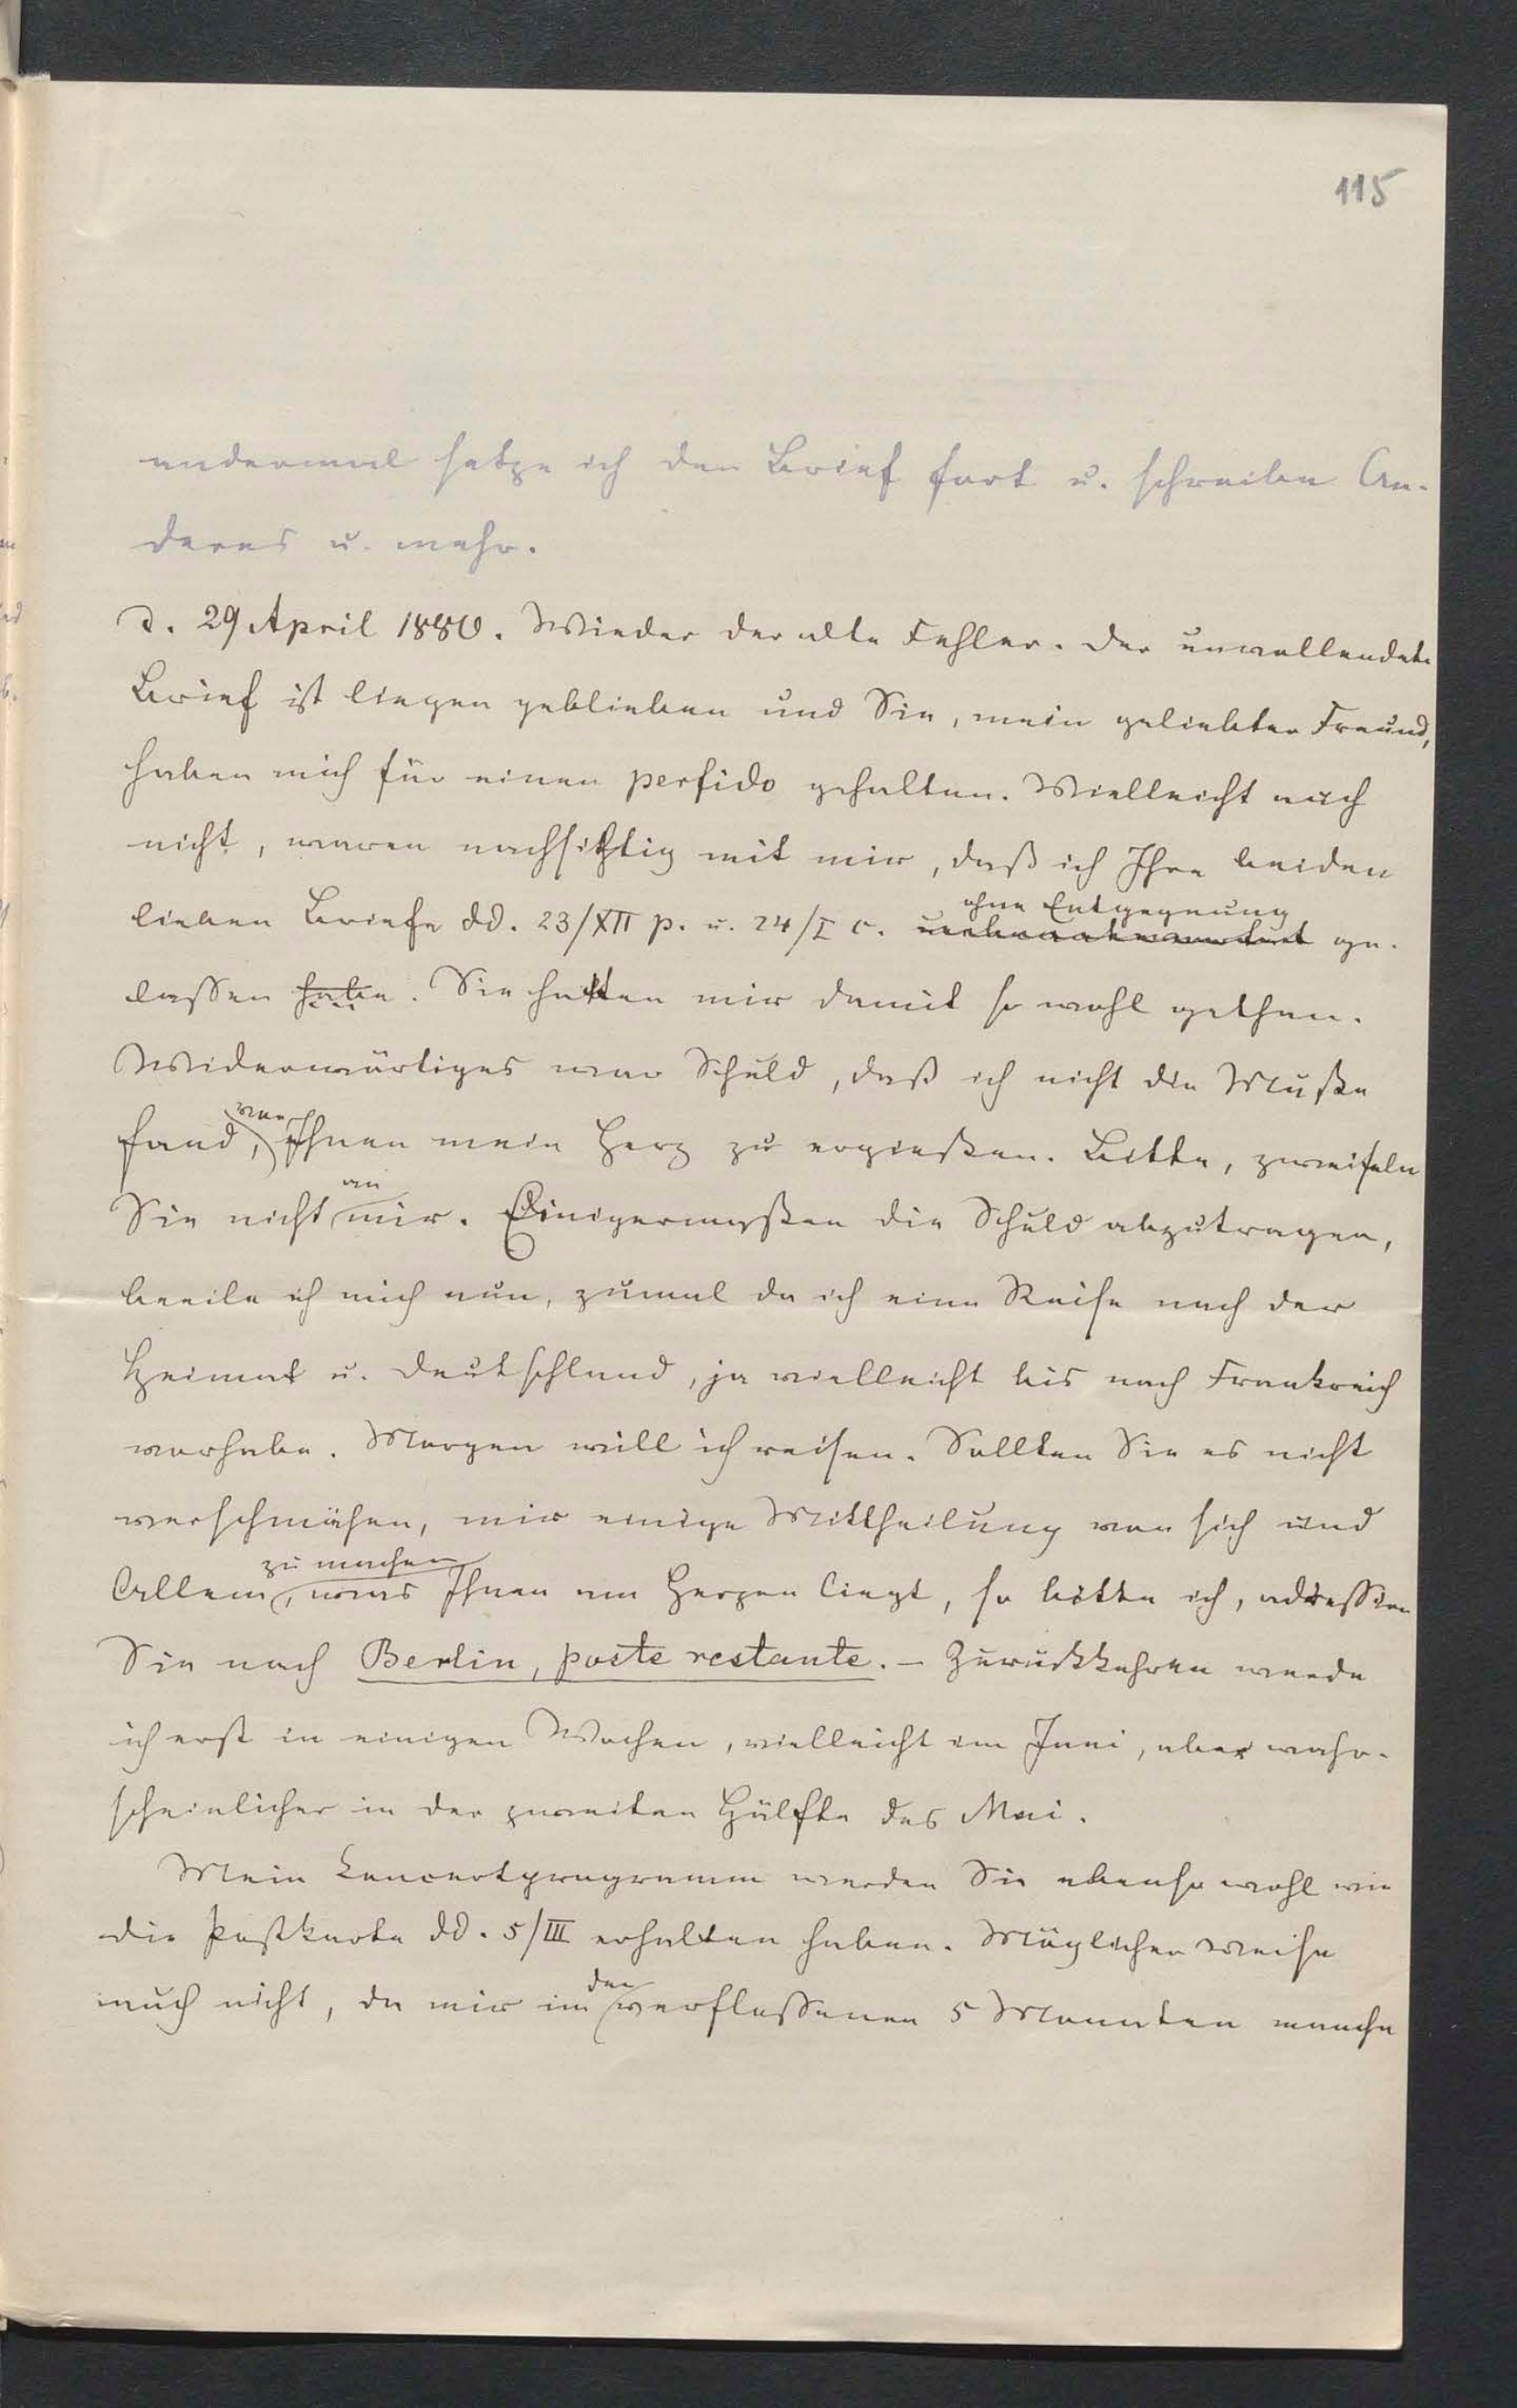 115
andermal setze ich den Brief fort u. schreibe An-
deres u. mehr.
D. 29 April 1880. Wieder der alte Fehler. Der unvollendete
Brief ist liegen geblieben und Sie, mein geliebter Freund,
haben mich für einen perfido gehalten. Vielleicht auch
nicht, waren nachsichtig mit mir, daß ich Ihre beiden
ohne Entgegnung
lieben Briefe dd. 23/XII p. u. 24/I c. ge-
lassen habe. Sie hatten mir damit so wohl gethan.
Widerwärtiges war Schuld, daß ich nicht die Muße
vor
fand, Ihnen mein Herz zu ergießen. Bitte, zweifeln
an
Sie nicht mir. Einigermaßen die Schuld abzutragen,
beeile ich mich nun, zumal da ich eine Reise nach der
Heimat u. Deutschland, ja vielleicht bis nach Frankreich
vorhabe. Morgen will ich reisen. Sollten Sie es nicht
verschmähen, mir einige Mittheilung von sich und
zu machen
Allem, was Ihnen am Herzen liegt, so bitte ich, adressiren
Sie nach Berlin, poste restante. – Zurückkehren werde
ich erst in einigen Wochen, vielleicht im Juni, aber wahr-
scheinlicher in der zweiten Hälfte des Mai.
Mein Concertprogramm werden Sie ebenso wohl wie
die Postkarte dd. 5/III erhalten haben. Möglicher Weise
auch nicht, da mir in
den
verflossenen 5 Monaten manche